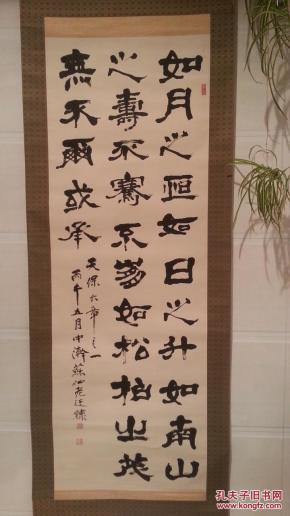 如月之恒如日之升如南山
之壽不騫不崩如松柏之茂
無不爾或承
天保六章之一
丙午五月中澣蘇
孔夫子旧书网